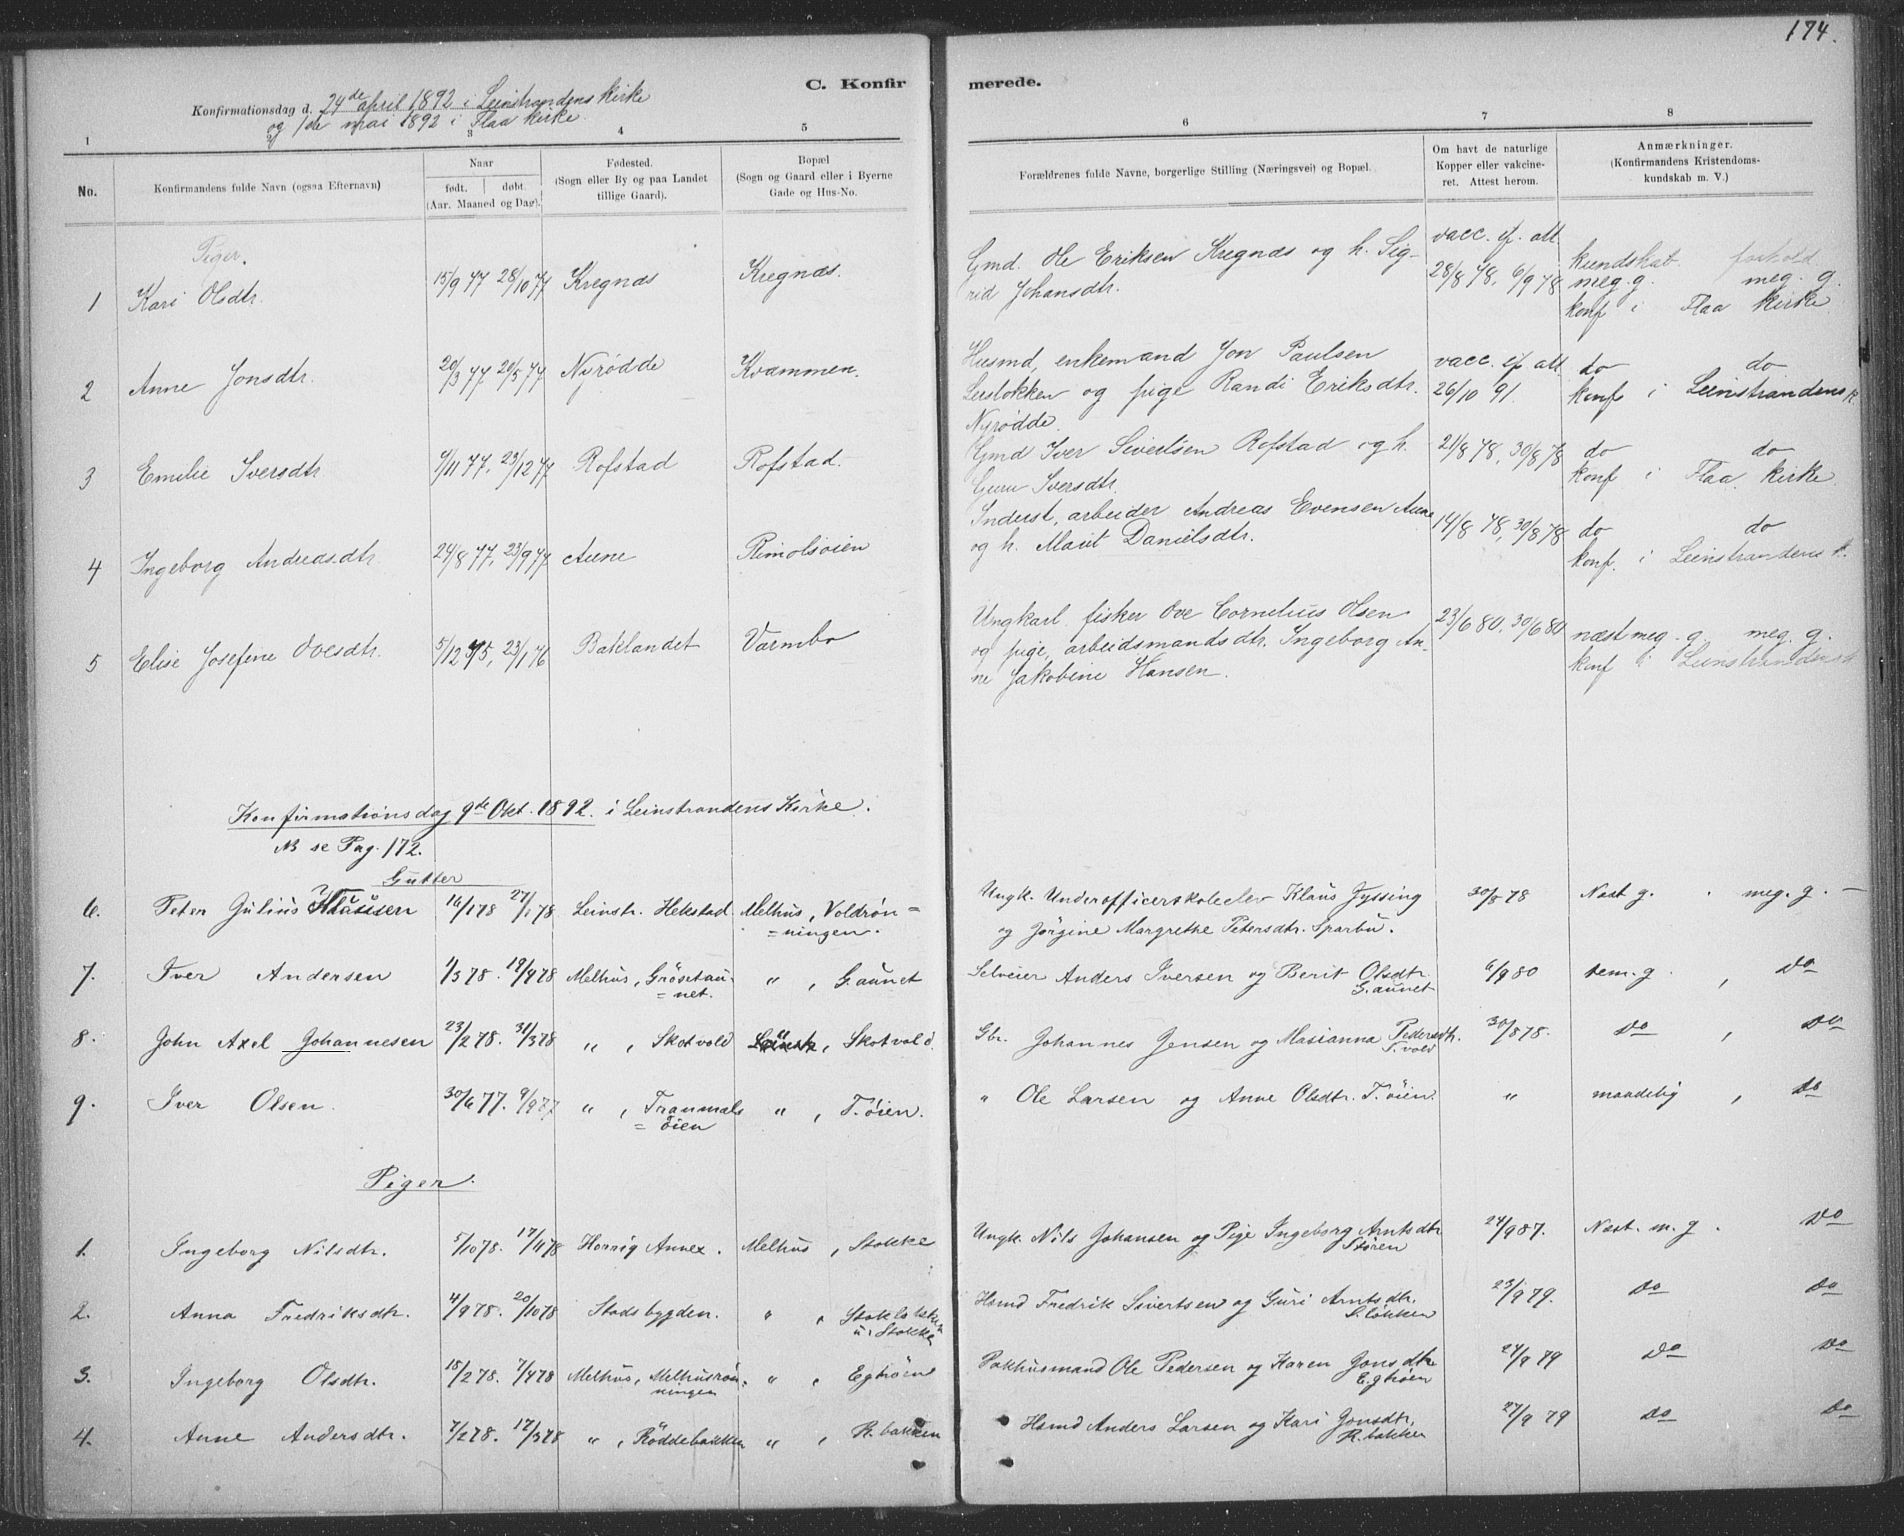 174.
C. Konfirmerede.
Konfirmationsdag d. 24de april 1892 i Leinstrandens kirke
og 1de mai 1892 i Flaa kirke.
1 3 4 5 6 7 8
No.
Konfirmandens fulde Navn (ogsaa Efternavn)
Naar
født. | døbt.
(Aar. Maaned og Dag).
Fødested.
(Sogn eller By og paa Landet
tillige Gaard).
Bopæl
(Sogn og Gaard eller i Byerne
Gade og Hus-No.
Forældrenes fulde Navne, borgerlige Stilling (Næringsvei) og Bopæl.
Om havt de naturlige
Kopper eller vakcine-
ret. Attest herom.
Anmærkninger.
(Konfirmandens Kristendoms-
kundskab m. V.)
Piger.
1 Kari Olsdtr. 15/9 77 28/10 77 Kregnæs Kregnæs. Gmd. Ole Eriksen Kregnæs og h. Sig-
rid Johansdtr. vacc. ef. att.
28/8 78, 6/9 78 kundskab forhold
meg. g. meg. g.
konf i Flaa kirke
2 Anne Jonsdtr. 20/3 77. 20/5 77 Nyrødde Kvammen. Husmd, enkemand Jon Paulsen
Lersløkken og pige Randi Eriksdtr.
Nyrødde. vacc. ef att.
26/10 91. do do
konf i Leinstrandens k.
3 Emilie Iversdtr 9/11 77, 23/12 77 Rofstad Rofstad. Gmd Iver Sivertsen Rofstad og h.
Guru Iversdtr. 21/8 78, 30/8 78 do do
konf i Flaa kirke.
4 Ingeborg Andreasdtr. 24/8 77, 23/9 77 Aune Rimolsøien Inderst, arbeider Andreas Evensen Aune
og h. Marit Danielsdtr. 14/8 78, 30/8 78 do do
konf. i Leinstrandens k.
5 Elise Josefine Ovesdtr. 5/12 75, 23/1 76 Baklandet Varmbo Ungkarl fisker Ove Cornelius Olsen
og pige, arbeidsmandsdtr. Ingeborg An-
ne Jakobine Hansen. 23/6 80, 30/6 80 næst meg. g. meg. g.
konf i Leinstrandens k
Konfirmationsdag 9de Okt. 1892. i Leinstrandens Kirke.
NB se Pag. 172.
Gutter
6. Peter Julius 16/1 78 27/1 78 Leinstr. Hekstad. Melhus, Voldrøn=
=ningen. Ungk. Underofficerskoleelev Klaus Jyssing
og Jörgine Margrethe Petersdtr. Sparbu. 30/8 78 Næst g. meg. g. —
7. Iver Andersen 1/3 78. 19/4 78 Melhus, Grösetau-
=net. „ , G.aunet Selveier Anders Iversen og Berit Olsdtr.
G.aunet 6/9 80 tem. g. , Do
8. John Axel Johannesen 23/2 78. 31/3 78 „ , Skotvold , Skotvold. Gbr. Johannes Jensen og Marianna Pedersdtr.
30/8 78. Do , Do
9. Iver Olsen. 30/6 77. 9/9 77 „ , Tranmæls
=öien „ , T.öien. „ Ole Larsen og Anne Olsdtr. T.öien. „ maadelig , do
Piger.
1. Ingeborg Nilsdtr. 5/10 78. 17/11 78 Horrig Annex. Melhus, Stokke Ungk. Nils Johansen og Pige Ingeborg Arntsdtr
Stören 24/9 87. Næst. m. g. Do
2. Anna Fredriksdtr. 4/9 78. 20/10 78 Stadsbygden. „ ,
u. Stokke Hsmd Fredrik Sivertsen og Guri Arntsdtr.
S.lökken 23/9 79. Do do
3. Ingeborg Olsdtr. 15/2 78. 7/4 78 Melhus, Melhusrön-
ningen „ , Eghöen Olé Pedersen og Karen Jonsdtr
Eghöen 24/9 79 Do Do
4. Anne Andersdtr. 7/2 78. 17/3 78 „ , Röddebakken „ , R.bakken Hsmd Anders Larsen og Kari Jonsdtr,
R.bakken 27/9 79 Do Do